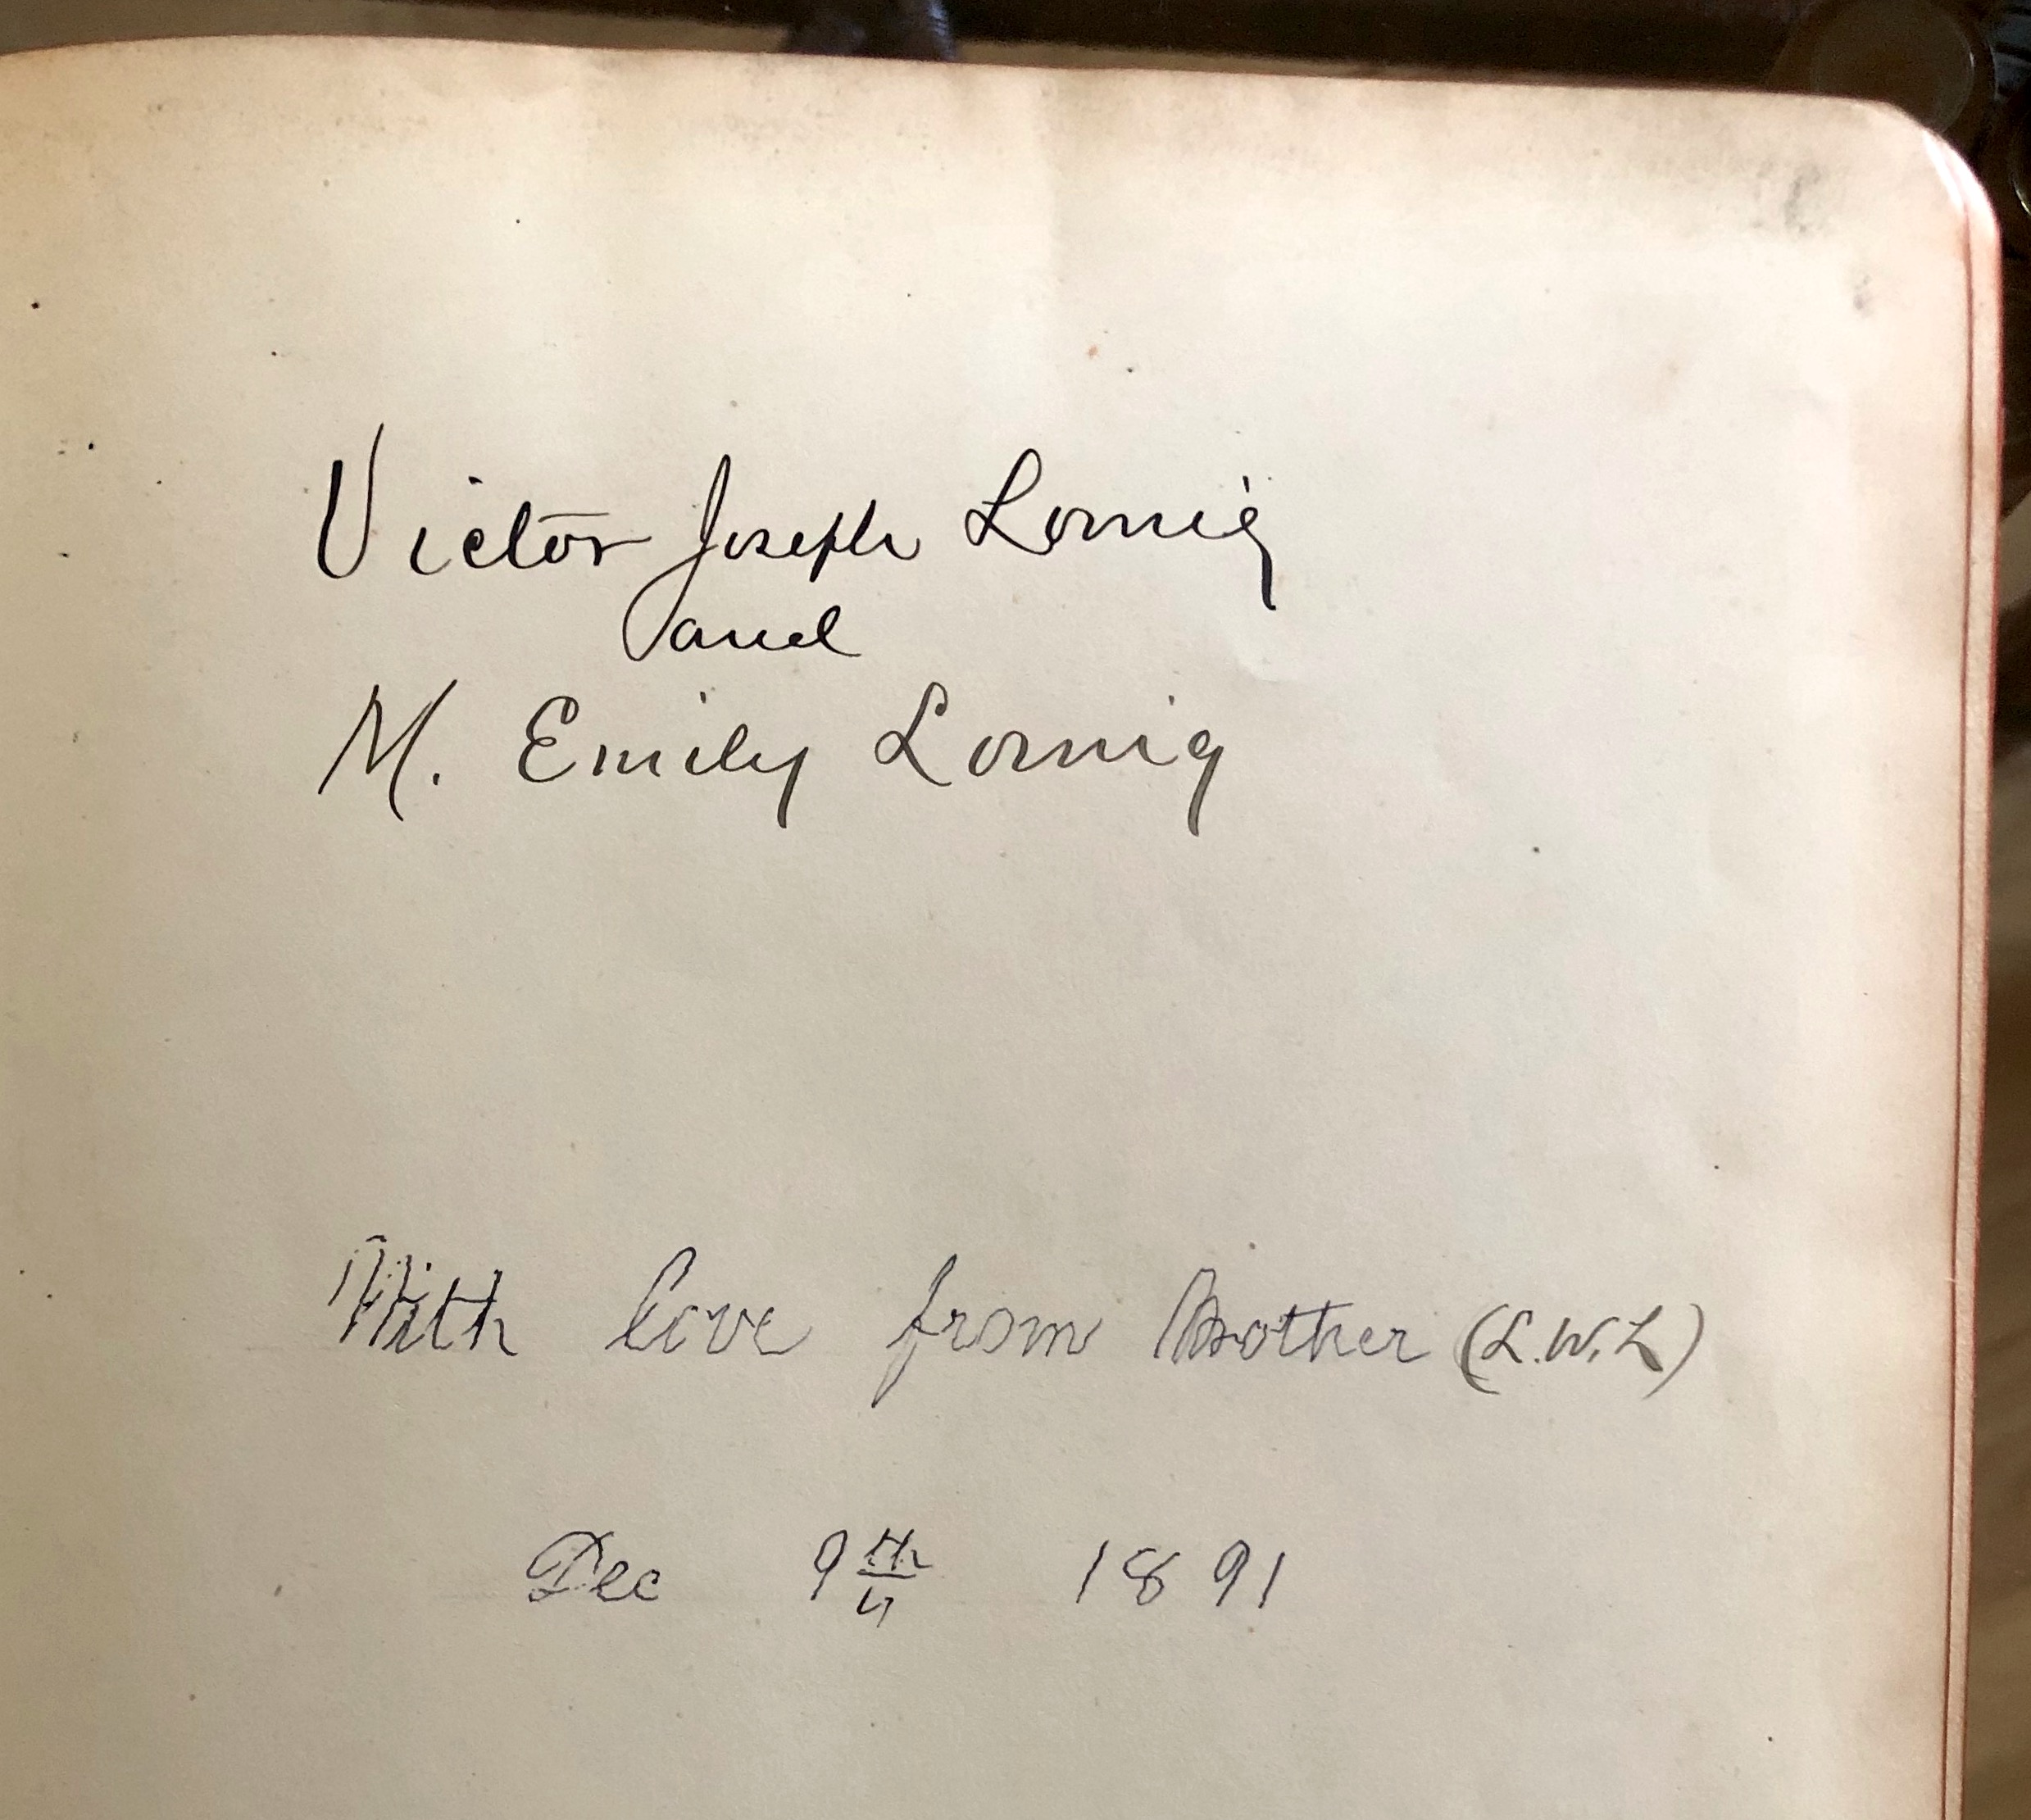 Victor Joseph Lornig
and
M. Emily Lornig
With love from Mother (L.W.L)
Dec 9th 1891